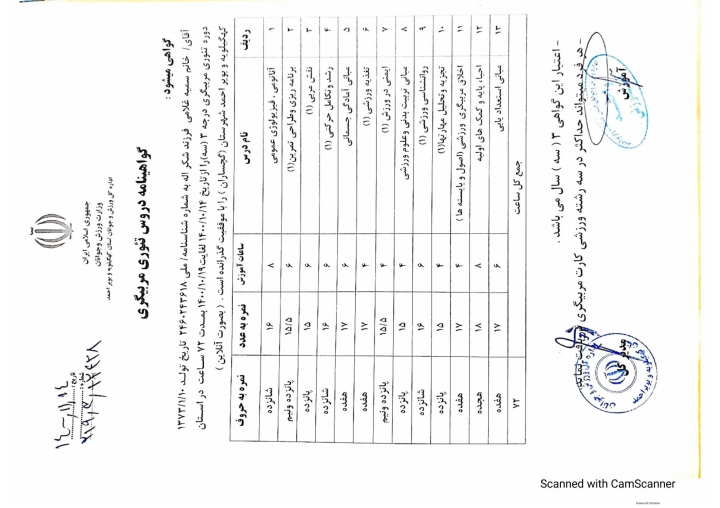 جمهوری اسلامی ایران
وزارت ورزش و جوانان
اداره کل ورزش و جوانان استان کهگیلویه و بویر احمد
تاریخ :
شماره :
گواهینامه دروس تئوری مربیگری
گواهی میشود :
آقای/ خانم سمیه غلامی فرزند شکر اله به شماره شناسنامه/ ملی ۲۴۶۰۲۴۳۶۱۸ تاریخ تولد ۱۳۷۳/۱/۱۰
دوره تئوری مربیگری درجه ۳ (سه) را از تاریخ ۱۴۰۰/۱۰/۱۴ لغایت ۱۴۰۰/۱۰/۱۹ بمدت ۷۲ ساعت در استان
کهگیلویه و بویر احمد شهرستان (گچساران ) را با موفقیت گذرانده است . ( بصورت آنلاین )
ردیف نام درس ساعات آموزش نمره به عدد نمره به حروف
۱ آناتومی ، فیزیولوژی عمومی ۸ ۱۶ شانزده
۲ برنامه ریزی وطراحی تمرین(۱) ۶ ۱۵/۵ پانزده ونیم
۳ نقش مربی (۱) ۶ ۱۵ پانزده
۴ رشد وتکامل حرکتی (۱) ۶ ۱۶ شانزده
۵ مبانی آمادگی جسمانی ۶ ۱۷ هفده
۶ تغذیه ورزشی (۱) ۴ ۱۷ هفده
۷ ایمنی در ورزش (۱) ۴ ۱۵/۵ پانزده ونیم
۸ مبانی تربیت بدنی وعلوم ورزشی ۴ ۱۵ پانزده
۹ روانشناسی ورزشی (۱) ۶ ۱۶ شانزده
۱۰ تجزیه وتحلیل مهارتها(۱) ۴ ۱۵ پانزده
۱۱ اخلاق مربیگری ورزشی (اصول و بایسته ها ) ۴ ۱۷ هفده
۱۲ احیاء پایه و کمک های اولیه ۸ ۱۸ هجده
۱۳ مبانی استعداد یابی ۶ ۱۷ هفده
جمع کل ساعت ۷۲
- اعتبار این گواهی ۳ ( سه ) سال می باشد .
- هر فرد میتواند حداکثر در سه رشته ورزشی کارت مربیگری
آموزش
مدیر کل
Scanned with CamScanner